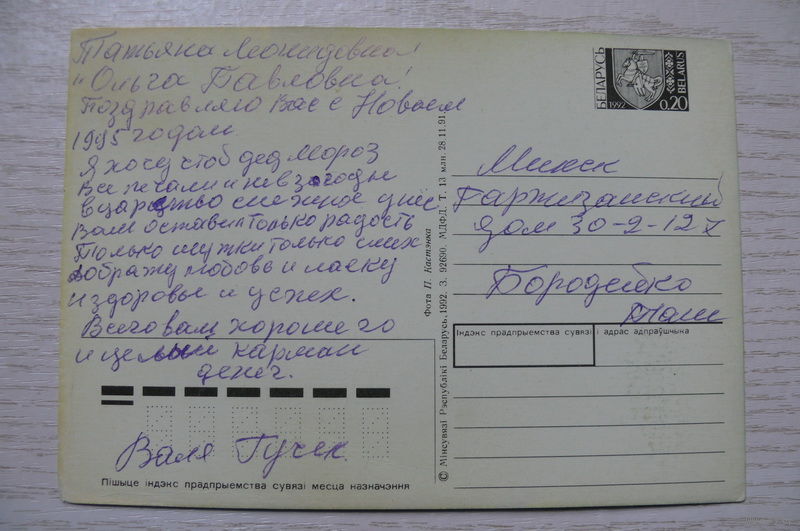 Татьяна Леонидовна!
и Ольга Павловна!
Поздравляю Вас с Новым
1995 годом
Я хочу чтоб дед Мороз
Все печали и невзгоды
в царство снежное унес
Вам оставил только радость
Только шутки только смех
дображу любовь и ласку
и здоровье и успех.
Всего вам хорошего
и целый карман
денег.
Валя Гучек
Пішыце індэкс прадпрыемства сувязі месца назначэння
© Мінсувязі Рэспублікі Беларусь, 1992. З. 92690. МДФД. Т. 13 млн. 28.11.91.
Фота П. Кастэнка
БЕЛАРУСЬ
1992
0,20
BELARUS
Минск
Партизанский
дом 30-2-127
Бородейко
Тане
Індэкс прадпрыемства сувязі і адрас адпраўшчыка